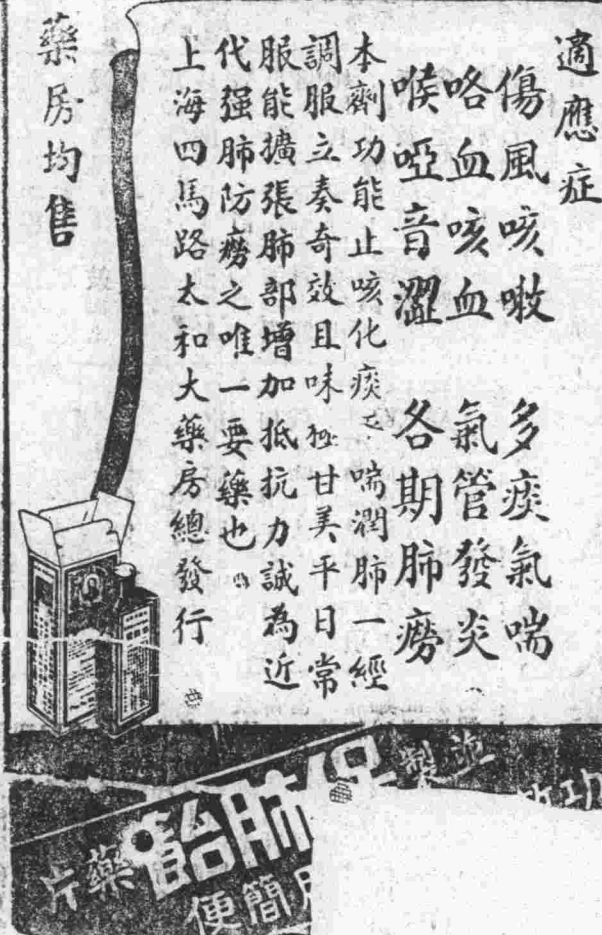 適應症
傷風咳嗽　多痰氣喘
咯血咳血　氣管發炎
喉啞音澀　各期肺癆
本劑功能止咳化痰　喘潤肺一經
調服立奏奇效且味極甘美平日常
服能擴張肺部增加抵抗力誠為近
代强肺防癆之唯一要藥也
上海四馬路太和大藥房總發行
藥房均售
並製
保肺飴
藥片
功效
服用簡便